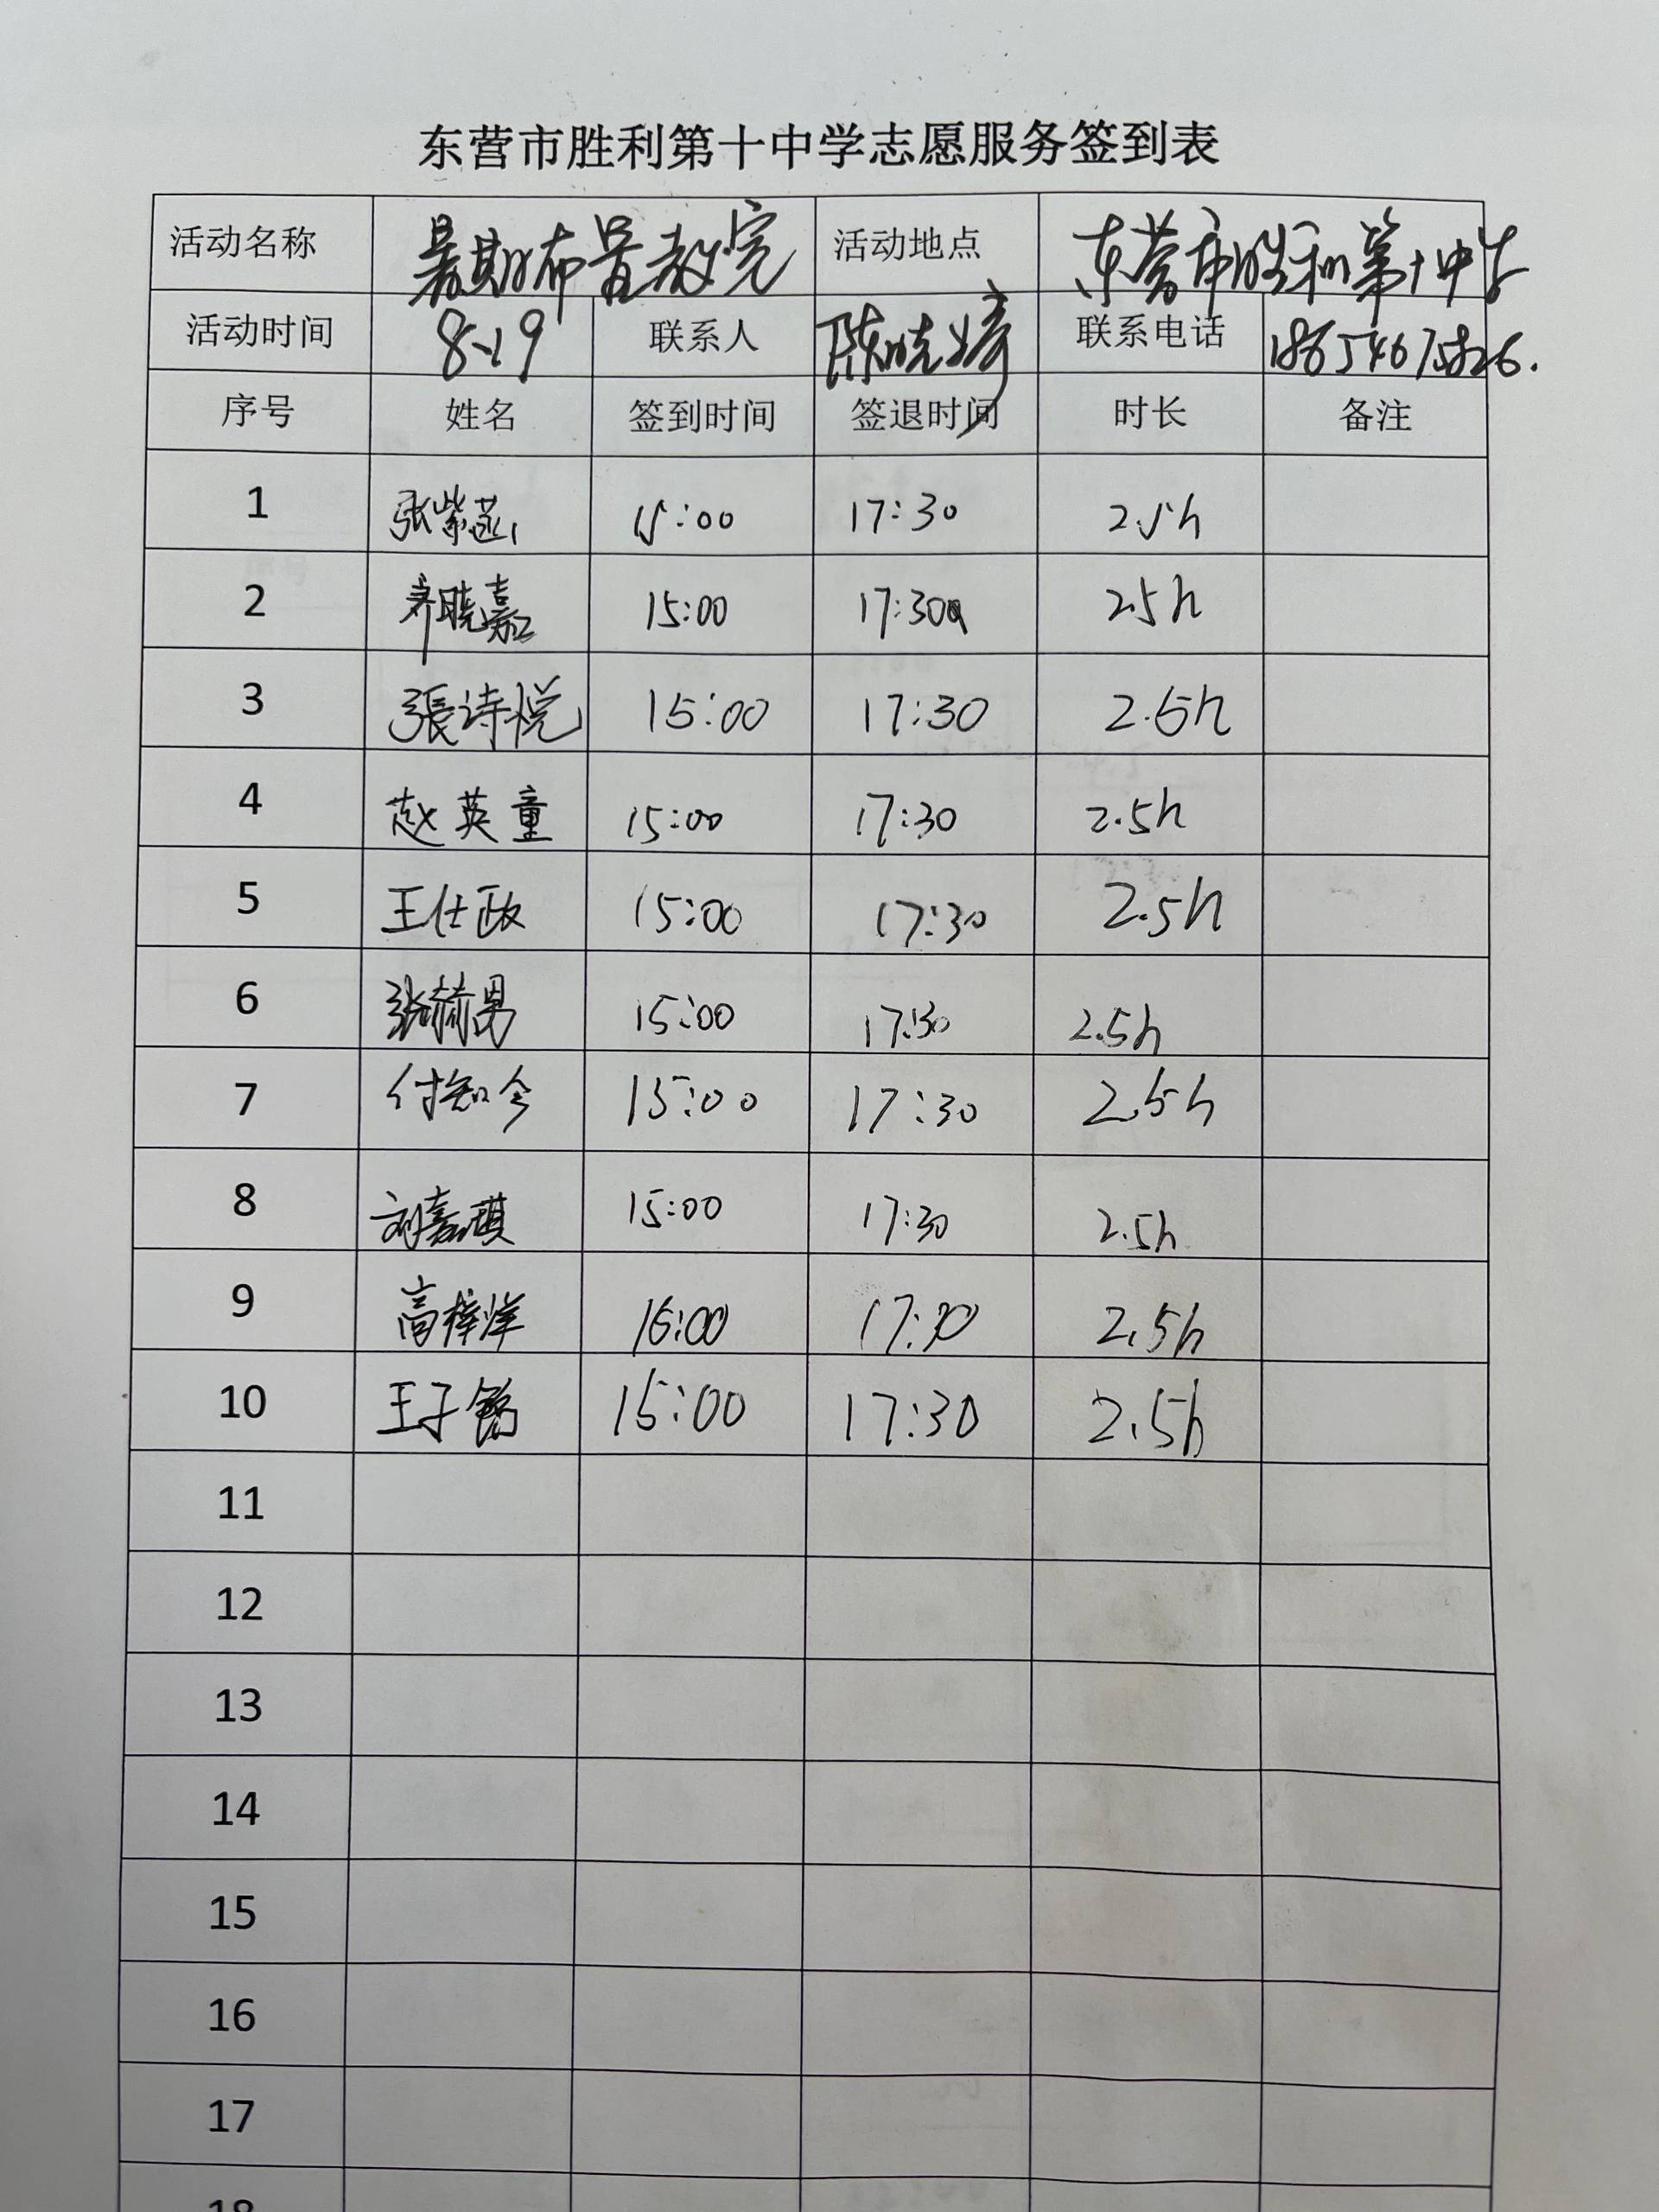 东营市胜利第十中学志愿服务签到表
活动名称 暑期布置教室 活动地点 东营市胜利第十中学
活动时间 8.19 联系人 陈晓婷 联系电话 18654675826.
序号 姓名 签到时间 签退时间 时长 备注
1 张紫涵 15:00 17:30 2.5h
2 齐晓嘉 15:00 17:30 2.5h
3 張诗悦 15:00 17:30 2.5h
4 赵英童 15:00 17:30 2.5h
5 王仕政 15:00 17:30 2.5h
6 张赫男 15:00 17:30 2.5h
7 付知今 15:00 17:30 2.5h
8 刘嘉琪 15:00 17:30 2.5h
9 高梓洋 15:00 17:30 2.5h
10 王子铭 15:00 17:30 2.5h
11
12
13
14
15
16
17
18